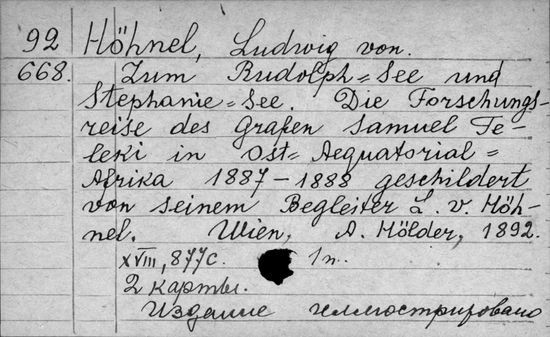 92 Höhnel, Ludwig von.
668. Zum Rudolph=See und
Stephanie=See. Die Forschungs-
reise des Grafen Samuel Te-
leki in Ost=Aequatorial=
Afrika 1887-1888 geschildert
von seinem Begleiter L. v. Höh-
nel. Wien, A. Hölder, 1892.
XVIII, 877 с. 1 п.
2 карты.
Издание иллюстрировано